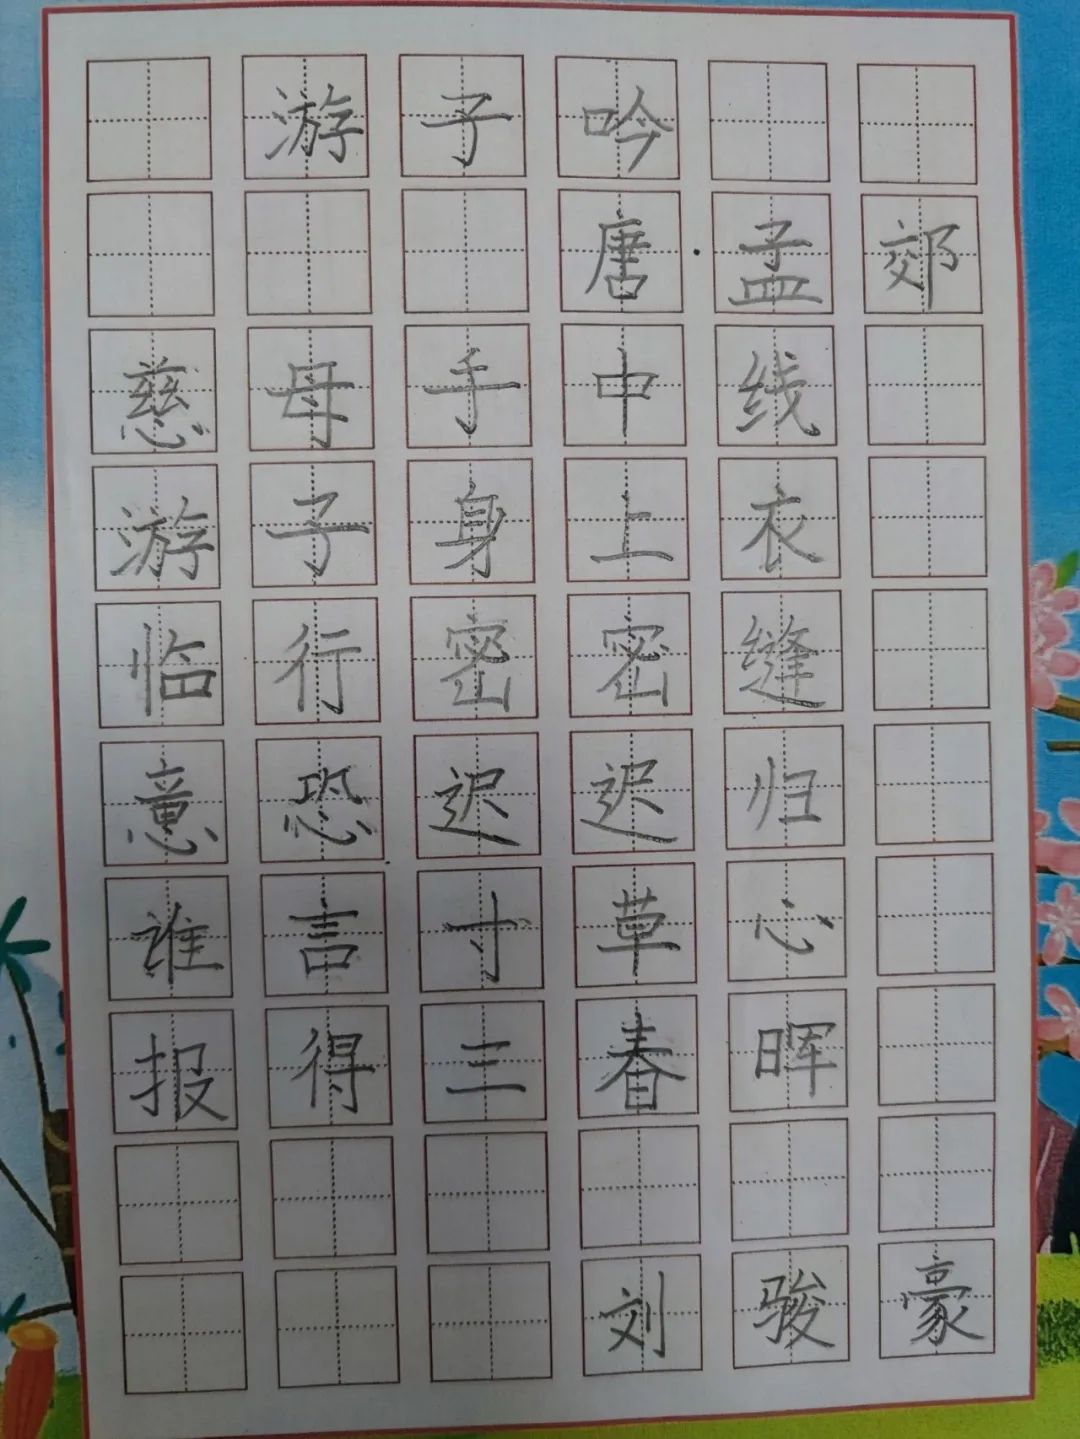 游子吟
唐·孟郊
慈母手中线
游子身上衣
临行密密缝
意恐迟迟归
谁言寸草心
报得三春晖
刘骏豪